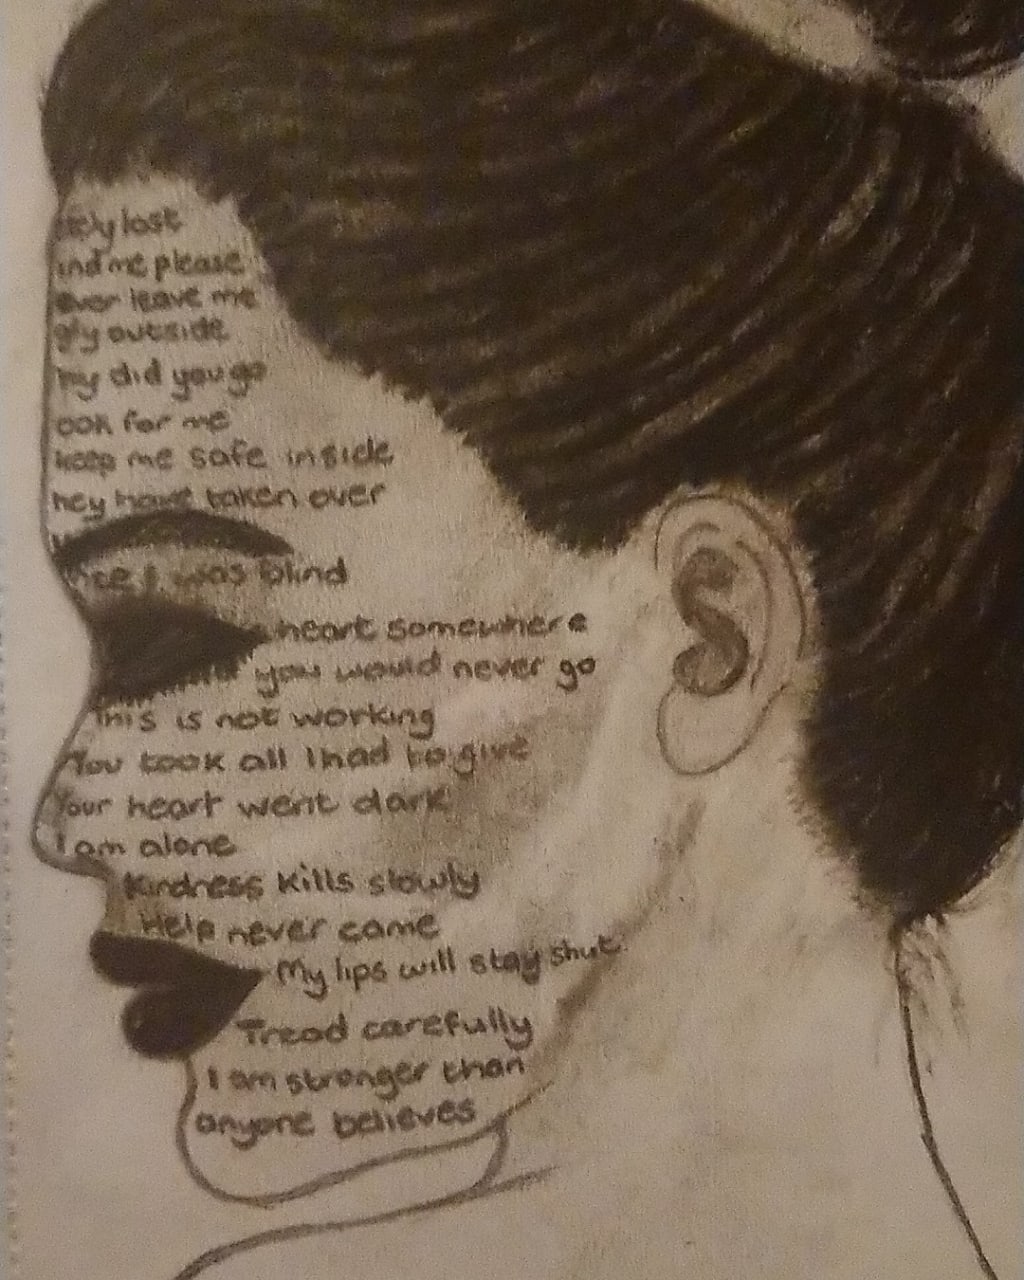 lost
me please
leave me
outside
did you go
for me
keep me safe inside
have taken over
I was blind
heart somewhere
you would never go
This is not working
You took all I had to give
Your heart went dark
I am alone
Kindness kills slowly
Help never came
My lips will stay shut.
Tread carefully
I am stronger than
anyone believes